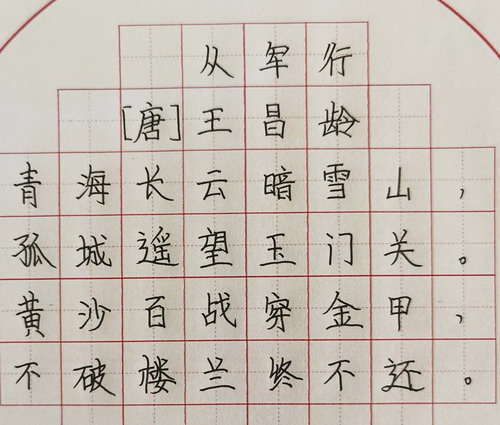 从军行
[唐]王昌龄
青海长云暗雪山，
孤城遥望玉门关。
黄沙百战穿金甲，
不破楼兰终不还。